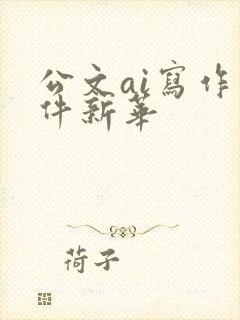 公文ai寫作
件新華
荷子